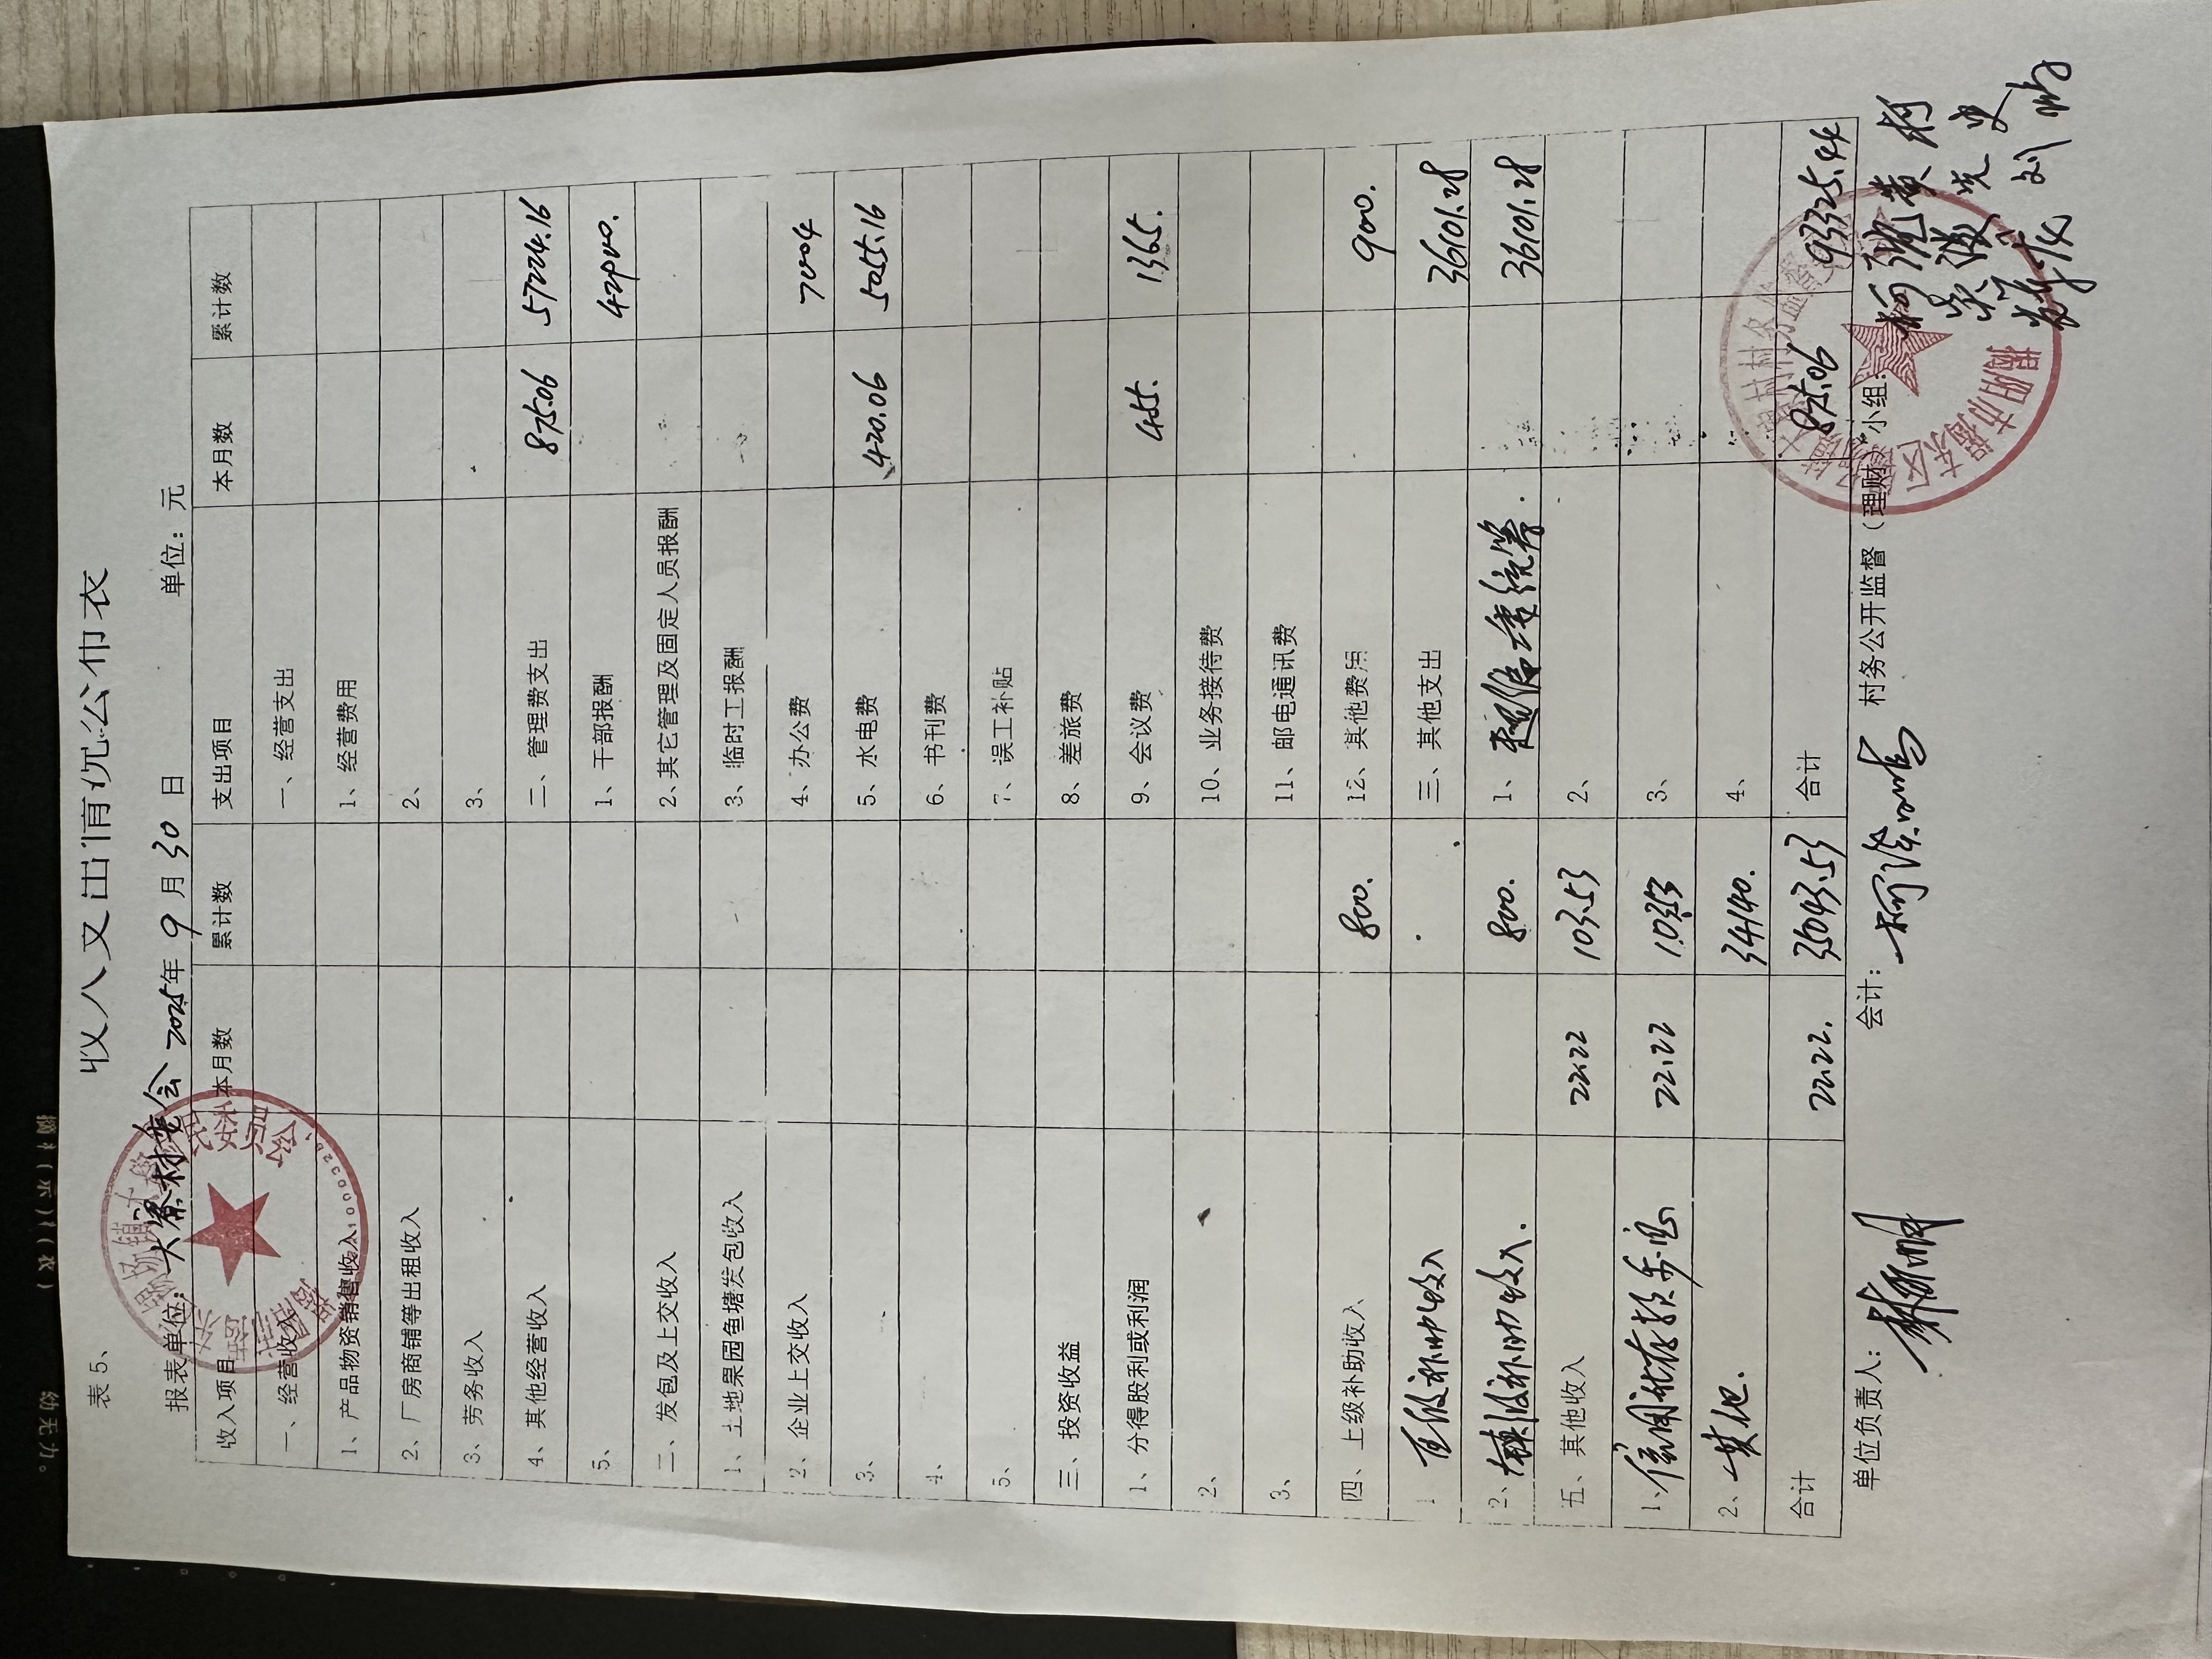 表5、
收入支出情况公布表
报表单位: 大寮村委会 2025年 9 月 30 日 单位: 元
收入项目 本月数 累计数 支出项目 本月数 累计数
一、经营收入 一、经营支出
1、产品物资销售收入 1、经营费用
2、厂房商铺等出租收入 2、
3、劳务收入 3、
4、其他经营收入 二、管理费支出 875.06 57224.16
5、 1、干部报酬 42900.
二、发包及上交收入 2.其它管理及固定人员报酬
1、土地果园鱼塘发包收入 3、临时工报酬
2、企业上交收入 4、办公费 7004
3、 5、水电费 420.06 5055.16
4、 6、书刊费
5、 7、误工补贴
三、投资收益 8、差旅费
1、分得股利或利润 9、会议费 455. 1365.
2、 10、业务接待费
3、 11、邮电通讯费
四、上级补助收入 800. 12、其他费用 900.
1 补助收入 三、其他支出 36101.28
2、镇级补助收入. 800. 1、 36101.28
五、其他收入 22.22 103.53 2、
1、信用社存款利息 22.22 103.53 3、
2、其他. 34140. 4、
合计 22.22. 35043.53 合计 875.06 93325.44
单位负责人: 会计: 村务公开监督(理财)小组: